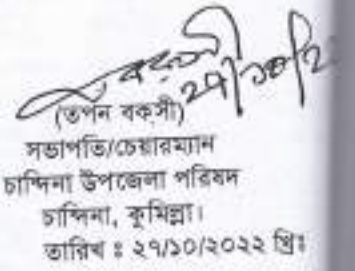 বকসী ২৭/১০/২
(তপন বকসী)
সভাপতি/চেয়ারম্যান
চান্দিনা উপজেলা পরিষদ
চান্দিনা, কুমিল্লা।
তারিখ ঃ ২৭/১০/২০২২ খ্রিঃ